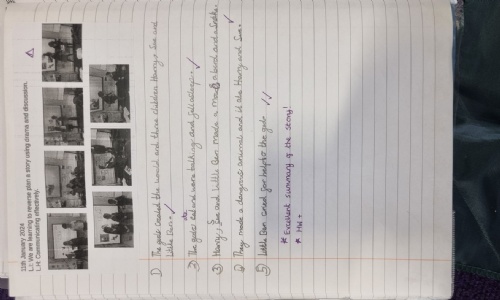 11th January 2024
L.I: We are learning to reverse plan a story using drama and discussion.
L.H: Communicating effectively.
1) The gods created the world and three children Harry, Sue and
little Ben.
2) The gods and were talking and fell asleep.
3) Harry, Sue and little Ben made a bird and a
4) They made a dangerous animal and it ate Harry and Sue.
5) Little Ben cried for help to the gods.
* Excellent summary of the story!
* Met